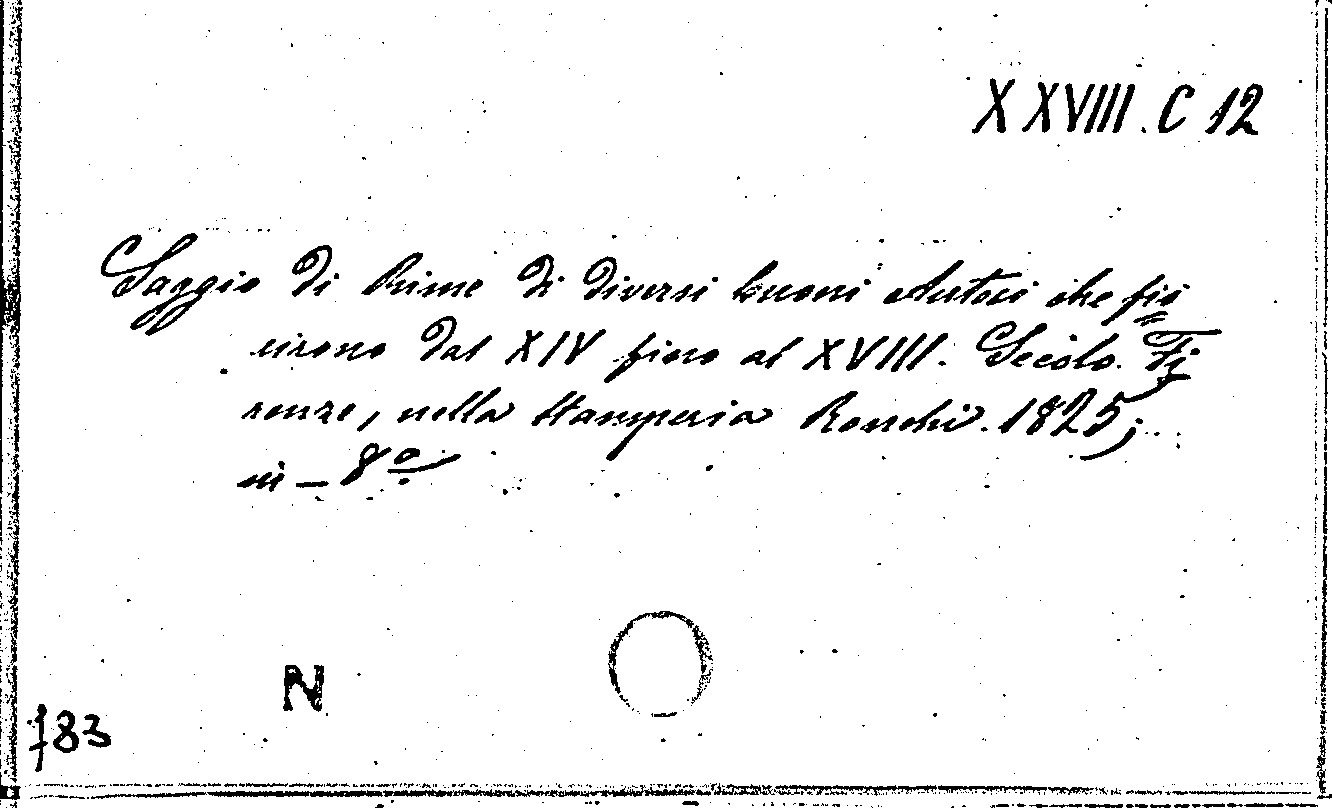 XXVIII. C 12
Saggio di Rime di diversi buoni Autori che fio=
rirono dal XIV fino al XVIII. Secolo. Fi=
renze, nella Stamperia Ronchi. 1825;
in - 8º
N
783